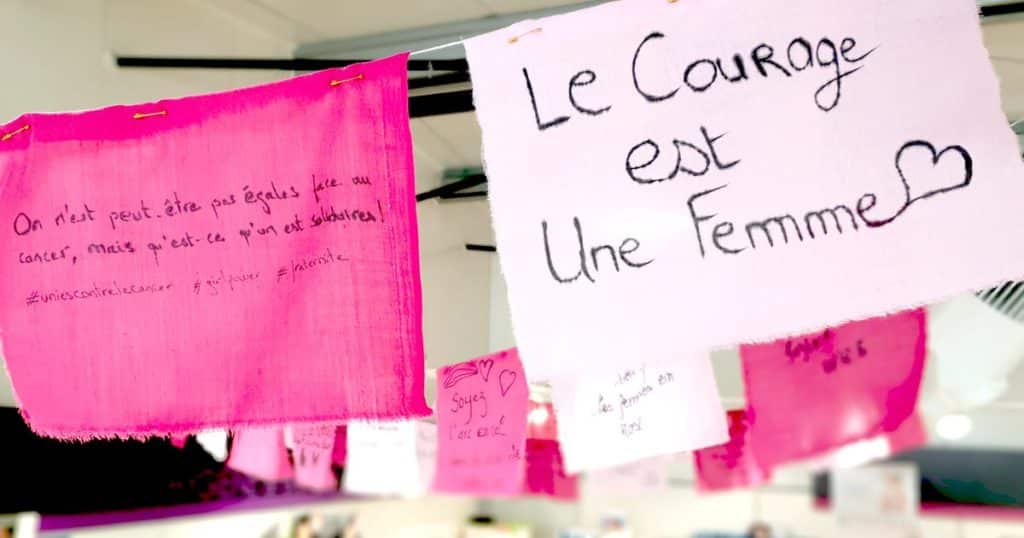 On n'est peut-être pas égales face au
cancer, mais qu'est-ce qu'on est solidaires!
#uniescontrelecancer #girlpower #fraternité
Le Courage
est
Une Femme
Soyez
les femmes en
Rose